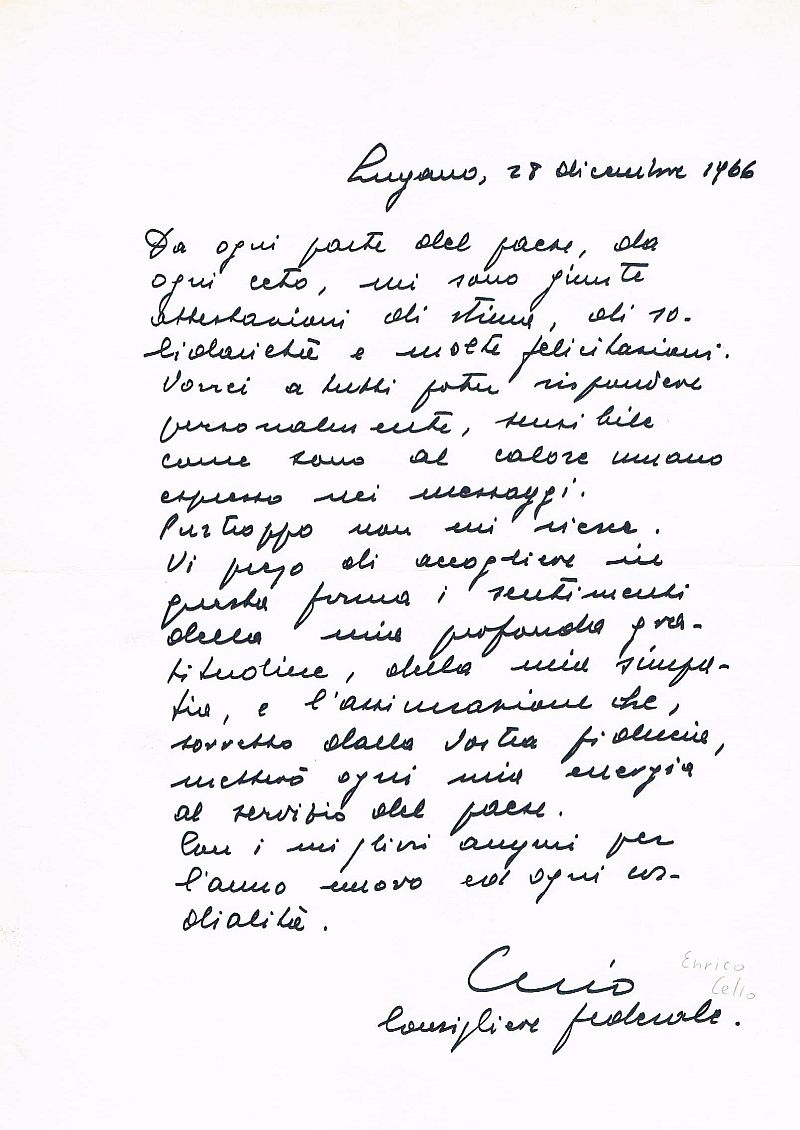 Lugano, 28 dicembre 1966
Da ogni parte del paese, da
ogni ceto, mi sono giunte
attestazioni di stima, di so-
lidarietà e molte felicitazioni.
Vorrei a tutti poter rispondere
personalmente, sensibile
come sono al calore umano
espresso nei messaggi.
Purtroppo non mi riesce.
Vi prego di accogliere in
questa forma i sentimenti
della mia profonda gra-
titudine, della mia simpa-
tia, e l'assicurazione che,
sorretto dalla Vostra fiducia,
metterò ogni mia energia
al servizio del paese.
Con i migliori auguri per
l'anno nuovo ed ogni cor-
dialità.
Celio
Enrico
Celio
Consigliere federale.